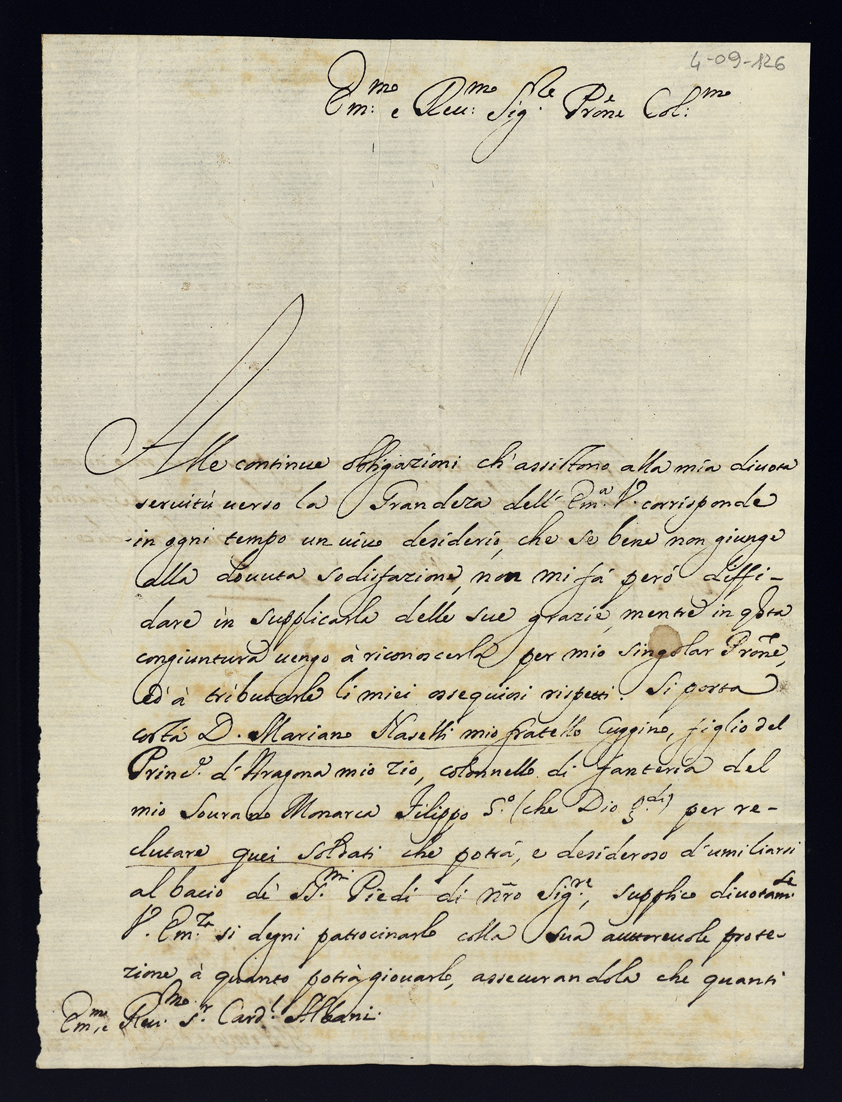 4-09-126
Em:mo e Reu:mo Sig.re Prone Col:mo
Alle continue obligazioni ch'assistono alla mia diuota
seruitù uerso la Grandeza dell' Em.a V. corrisponde
in ogni tempo un uiuo desiderio, che se bene non giunge
alla douuta sodisfazione, non mi fà però diffi-
dare in supplicarla delle sue grazie, mentre in qsta
congiuntura uengo à riconoscerla per mio singolar Prone,
ed à tributarle li miei ossequiosi rispetti. Si porta
costà D. Mariano Naselli mio fratello Cuggino, figlio del
Princ.e d'Aragona mio zio, colonnello di fanteria del
mio Sourano Monarca Filippo 5.o (che Dio g.di) per re-
clutare quei soldati che potrà, e desideroso d'umiliarsi
al bacio de' SS.mi Piedi di nro Sig.re, supplico diuotam.te
V. Em.za si degni patrocinarlo colla sua autoreuole prote-
zione à quanto potrà giouarle, assecurandola che quanti
Em.mo e Reu.mo S.r Card.l Albani.